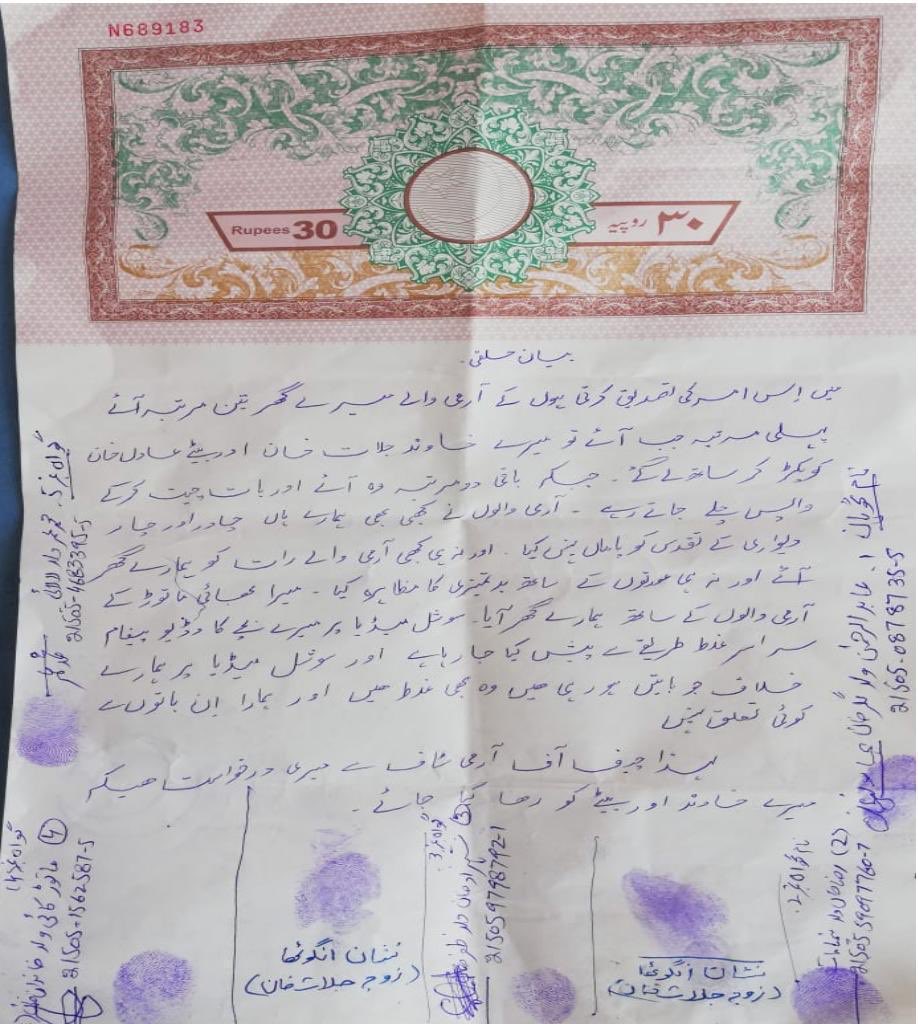 N689183
Rupees 30
۳۰ روپیہ
بیان حلفی۔
میں اِس امر کی تصدیق کرتی ہوں کے آرمی والے میرے گھر تین مرتبہ آئے
پہلی مرتبہ جب آئے تو میرے خاوند جلات خان اور بیٹے عادل خان
کو پکڑ کر ساتھ لے گئے۔ جبکہ باقی دو مرتبہ وہ آئے اور بات چیت کرکے
واپس چلے جاتے رہے ۔ آرمی والوں نے کبھی بھی ہمارے ہاں چادر اور چار
دیواری کے تقدس کو پامال نہیں کیا ۔ اور نہ ہی کبھی آرمی والے رات کو ہمارے گھر
آئے اور نہ ہی عورتوں کے ساتھ بدتمیزی کا مظاہرہ کیا ۔ میرا بھائی ماتوڑکے
آرمی والوں کے ساتھ ہمارے گھر آیا۔ سوشل میڈیا پر میرے بچے کا وڈیو پیغام
سراسر غلط طریقے سے پیش کیا جا رہا ہے اور سوشل میڈیا پر ہمارے
خلاف جو باتیں ہو رہی ھیں وہ بھی غلط ھیں اور ہمارا اِن باتوں سے
کوئی تعلق نہیں
لہذا چیف آف آرمی سٹاف سے میری درخواست ھیکہ
میرے خاوند اور بیٹے کو رھا کیا جائے ۔
نشان انگوٹھا
(زوجہ جلات خان)
نشان انگوٹھا
(زوجہ جلات خان)
گواہ نمبر 5
21505-4683395-5
21505-0878735-5
نام گواہ نمبر 2
(2)
21505 5909776-7
گواہ نمبر 3
(3)
215059798792-1
گواہ نمبر 4
(4)
21505-1562587-5